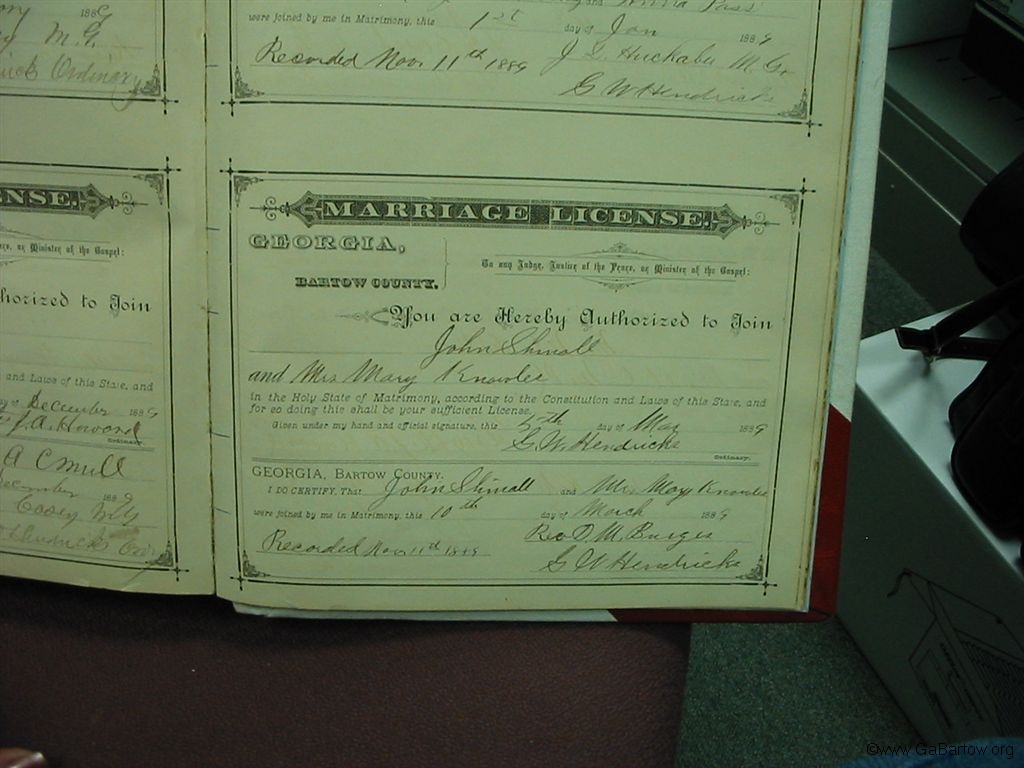 1889
M. G.
Ordinary
NSE.
or Minister of the Gospel:
horized to Join
and Laws of this State, and
December 1889
J. A. Howard
Ordinary.
A C Mull
1889
Casey M G
were joined by me in Matrimony, this 1st day of Jan 1889
J. L. Huckabu M. G.
Recorded Nov. 11th 1889
G W Hendricks
MARRIAGE LICENSE.
GEORGIA,
BARTOW COUNTY.
To any Judge, Justice of the Peace, or Minister of the Gospel:
You are Hereby Authorized to Join
John Shinall
and Mrs Mary Knowlee
in the Holy State of Matrimony, according to the Constitution and Laws of this State, and
for so doing this shall be your sufficient License.
Given under my hand and official signature, this 5th day of Mar 1889
G. W. Hendricks
Ordinary.
GEORGIA, BARTOW COUNTY.
I DO CERTIFY, That John Shinall and Mrs. Mary Knowlee
were joined by me in Matrimony, this 10th day of March 1889
Rev D. M. Burges
Recorded Nov 11th 1889
G W Hendricks
©www.GaBartow.org